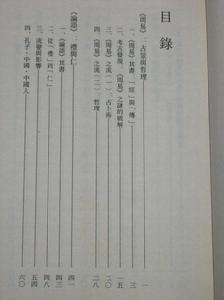 目錄
《周易》：占筮與哲理……一
一、《周易》其書：「經」與「傳」……三
二、考古發現：《周易》之謎的破解……一五
三、《周易》之流(一)：占卜術……二〇
四、《周易》之流(二)：哲理……二八
《論語》：禮與仁……四一
一、《論語》其書……四三
二、從「禮」到「仁」……四八
三、流變與影響……五四
四、孔子·中國·中國人……六〇